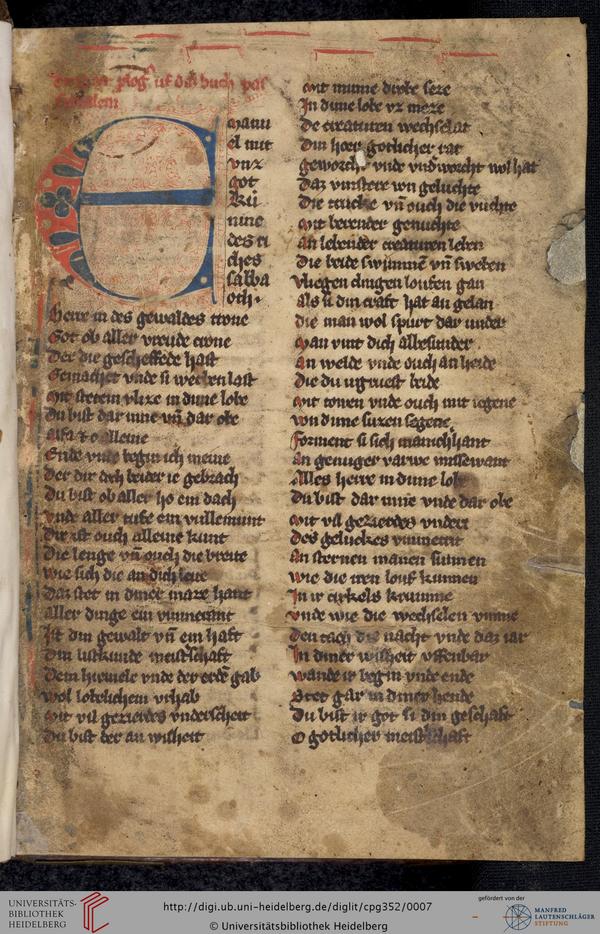 Emanu
el mit
vns
got
kü
ninc
des ri
ches
sabba
oth·
Herre in des gewaldes trone
Got ob aller vreude crone
Der die gescheffede hast
Gemachet vnde si wechsen last
Mit stetem vlize in dime lobe
Du bist dar inne vn̄ dar obe
alfa et o alleine
Ende vnde begin ich meine
Der dir doch beider ie gebrach
Du bist ob aller ho ein dach
vnde aller tufe ein vullemunt
Dir ist ouch alleine kunt
Die lenge vn̄ ouch die breite
wie sich die an dich leite
Daz stet in diner maze hant
aller dinge ein vmmevant
Ist din gewalt vn̄ ein haft
Din kunde meisterschaft
Dem himele vnde der erdē gab
wol lobelichem vrhab
Mit vil gezierdes vnderscheit
Du bist der an wisheit
Mit mime dinte seze
In dime lobe vz meze
De creaturen wechselat
Din hoer gotlicher rat
geworcht vnde vnd'worcht wol hat
Daz vinstere von geluchte
Die trucke vn̄ ouch die vuchte
Mit berender genuchte
an lebēder creaturen leben
Die beide swimmē vn̄ sweben
vliegen clingen loufen gan
als si din craft hat an gelan
die man wol spurt dar under
Man vint dich albesunder
an welde vnde ouch an heide
die du irgruest beide
Mit towen vnde ouch mit regene
von dime suzen segene
forment si sich manichhant
An genuger varwe missewant
Alles herre in dime lobe
Du bist dar inne vnde dar obe
Mit vil gezierdes vndere
Des geluckes vmmerit
an sternen manen sunnen
wie die iren louf kunnen
In ir cirkels krumme
vnde wie die wechselen vmme
Den tach die nacht vnde daz iar
In diner wisheit vffenbar
wande ir begin vnde ende
Stet gar in diner hende
Du bist ir got si din geschaft
O gotlicher meisterschaft
UNIVERSITÄTS-
BIBLIOTHEK
HEIDELBERG
http://digi.ub.uni-heidelberg.de/diglit/cpg352/0007
© Universitätsbibliothek Heidelberg
gefördert von der
MANFRED
LAUTENSCHLÄGER
STIFTUNG